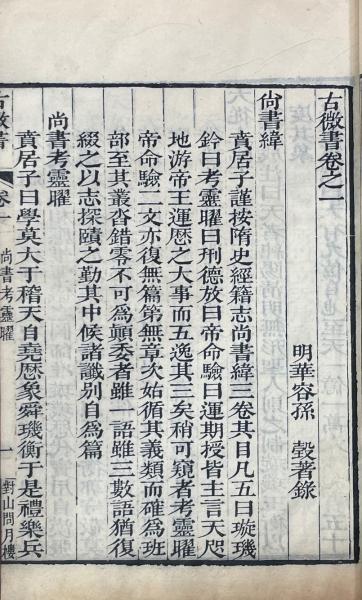 古微書卷之一
明華容孫　瑴著錄
尚書緯
賁居子謹按隋史經籍志尚書緯三卷其目凡五曰璇璣
鈐曰考靈曜曰刑德放曰帝命驗曰運期授皆主言天咫
地游帝王運歷之大事而五逸其三矣稍可窺者考靈曜
帝命驗二文亦復無篇第無章次始循其義類而確爲班
部至其叢沓錯零不可爲顛委者雖一語雖三數語猶復
綴之以志探賾之勤其中候諸讖別自爲篇
尚書考靈曜
賁居子曰學莫大于稽天自堯歷象舜璣衡于是禮樂兵
古微書
卷一
尚書考靈曜
一
對山問月樓